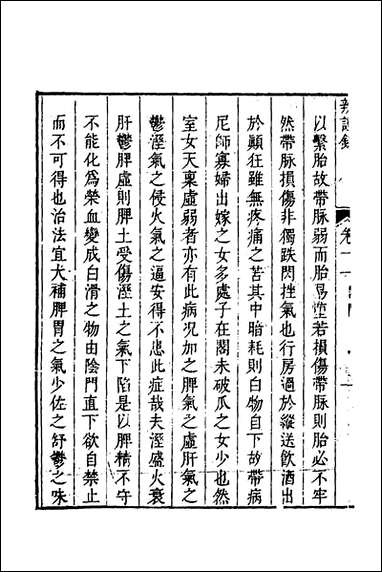 辨證錄　卷十一
以繫胎故帶脉弱而胎易墜若損傷帶脉則胎必不牢
然帶脉損傷非獨跌閃挫氣也行房過於縱送飲酒出
於顛狂雖無疼痛之苦其中暗耗則白物自下故帶病
尼師寡婦出嫁之女多處子在閣未破瓜之女少也然
室女天稟虛弱者亦有此病况加之脾氣之虛肝氣之
鬱溼氣之侵火氣之逼安得不患此症哉夫溼盛火衰
肝鬱脾虛則脾土受傷溼土之氣下陷是以脾精不守
不能化爲榮血變成白滑之物由陰門直下欲自禁止
而不可得也治法宜大補脾胃之氣少佐之舒鬱之味